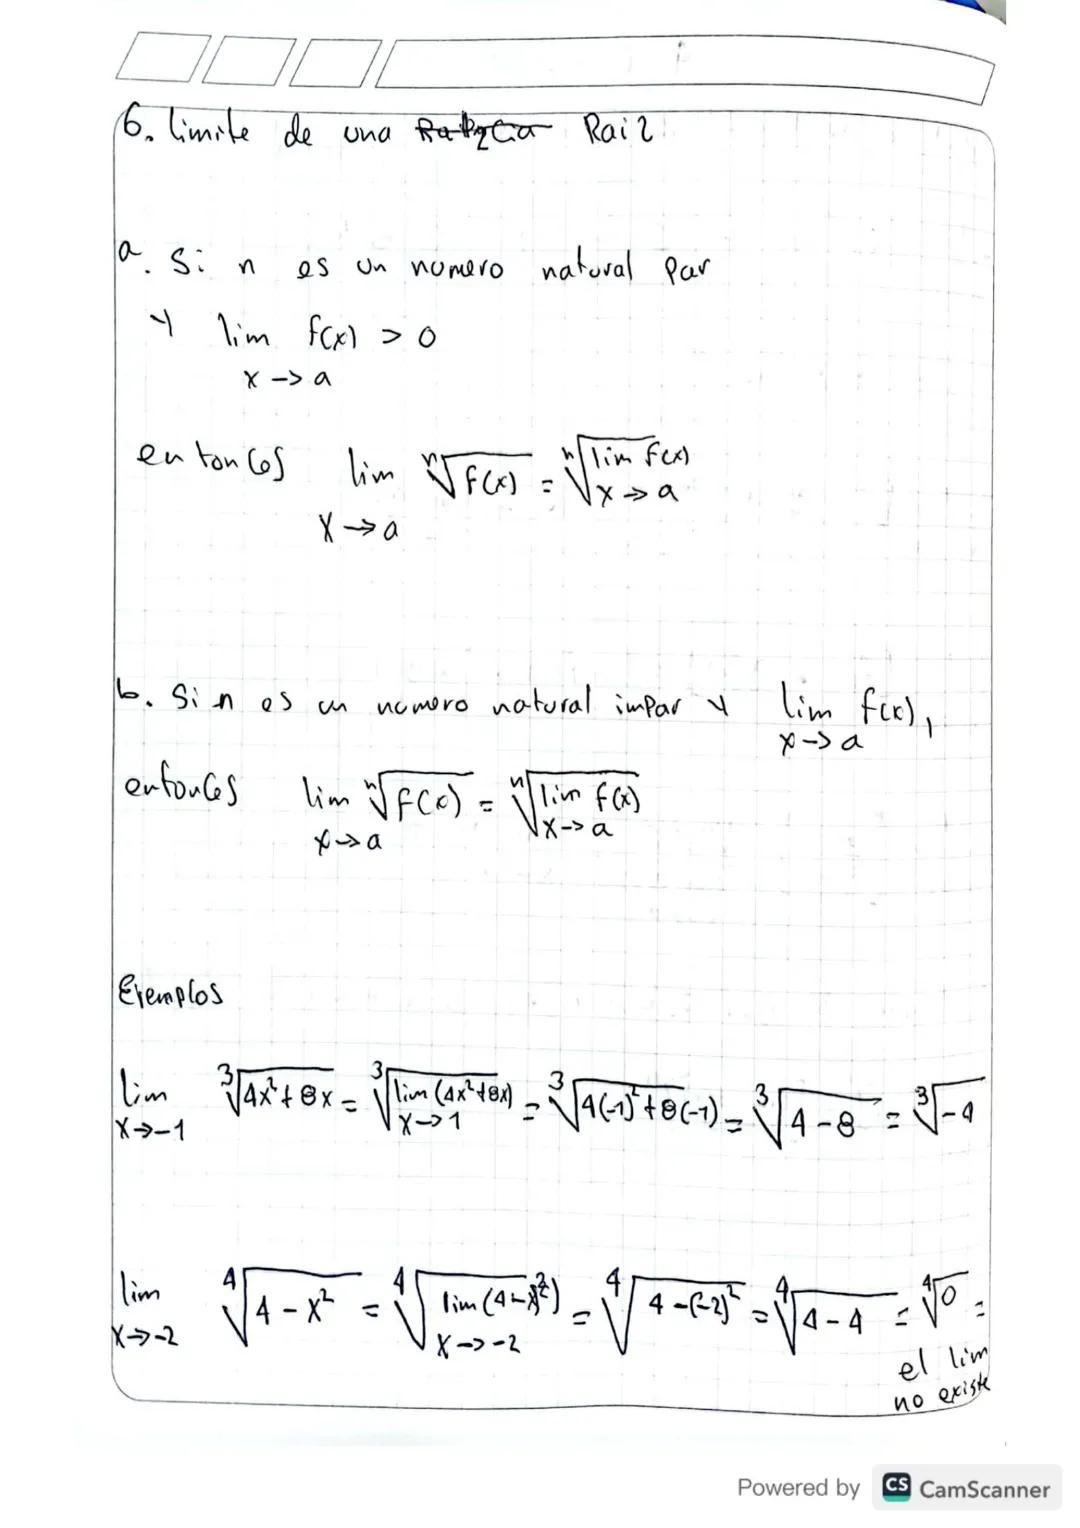 6. limite de una Raiz
a. Si n es un numero natural par
y lim f(x) > 0
x -> a
entonces lim ⁿ√f(x) = ⁿ√lim f(x)
x -> a x -> a
b. Si n es un numero natural impar y lim f(x),
x -> a
entonces lim ⁿ√f(x) = ⁿ√lim f(x)
x -> a x -> a
Ejemplos
lim ³√4x²+8x = ³√lim (4x²+8x) = ³√4(-1)²+8(-1) = ³√4-8 = ³√-4
x->-1 x->1
lim ⁴√4-x² = ⁴√lim (4-x²) = ⁴√4-(-2)² = ⁴√4-4 = ⁴√0 =
x->-2 x->-2
el lim
no existe
Powered by CS CamScanner